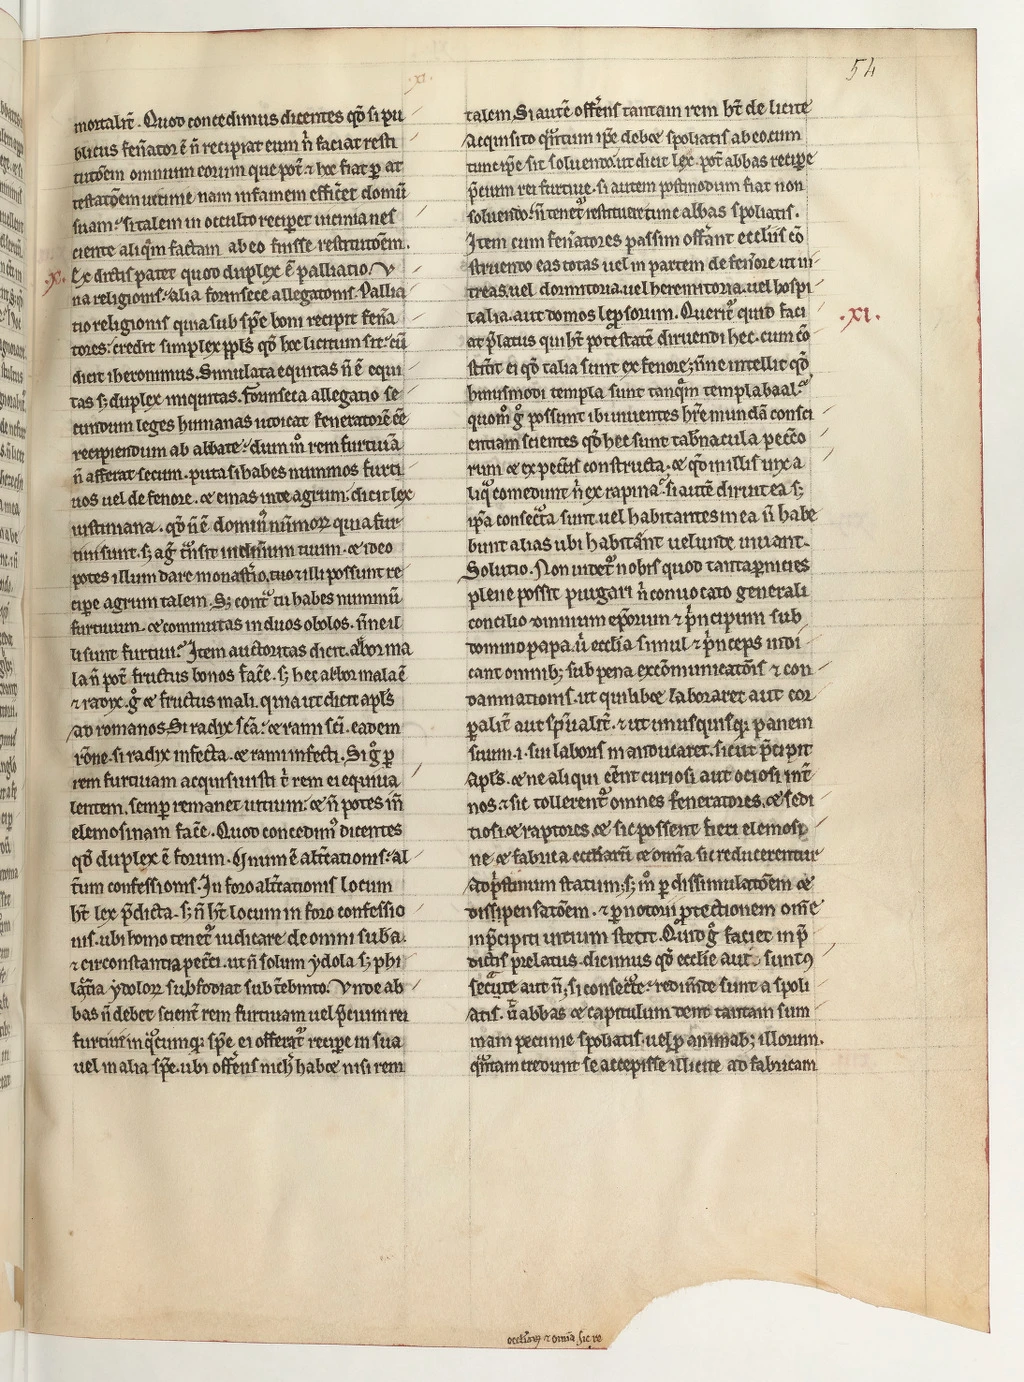 54
.xi.
mortalit̄. Quod concedimus dicentes qd̄ si pu
blicus fen̄ator ē n̄ recipiat eum n̄ faciat resti
tutōem omnium eorum que pot̄ ⁊ hec fiat ꝑ at
testatōem uicinie nam infamem efficēt domū
suam. si talem in occulto reciperet uicinia nes
ciente aliqm̄ factam ab eo fuisse restitutōem.
.x. Ex dictis patet quod duplex ē palliatio. V
na religionis. alia forinsece allegatonis. Pallia
tio religionis quia sub spē boni recipit fen̄a
tores. credit simplex ppl̄s qd̄ hec licitum sit. cū
dicit iheronimus. Simulata equitas n̄ ē equi
tas sꝫ duplex iniquitas. Forinseca allegatio se
cundum leges humanas iudicat feneratorē ēē
recipiendum ab abbate. dum m̊ rem furtiuā
n̄ afferat secum. puta si habes nummos furti
uos uel de fenore. ⁊ emas inde agrum. dicit lex
iustiniana. qd̄ n̄ ē domin᷒ nūmoꝝ quia fur
tiui sunt. sꝫ ag̊ tn̄sit in dn̄ium tuum. ⁊ ideo
potes illum dare monastīo, tuo ⁊ illi possunt re
cipe agrum talem. Sꝫ contᵃ tu habes nummū
furtiuum. ⁊ commutas in duos obolos. n̄ne il
li sunt furtiui. Item auctoritas dicit. arbor ma
la n̄ pot̄ fructus bonos facē. sꝫ hec arbor mala ē
⁊ radix. g̊ ⁊ fructus mali. quia ut dicit apl̄s
ad romanos. Si radix scā. ⁊ rami scī. eadem
rōne. si radix infecta. ⁊ rami infecti. Si g̊ ꝑ
rem furtiuam acquisiuisti t̄ rem ei equiua
lentem. semꝑ remanet uitium. ⁊ n̄ potes in̄
elemosinam facē. Quod concedim᷒ dicentes
qd̄ duplex ē forum. Unum ē alt̄cationis. al
t̄um confessionis. In foro alt̄cationis locum
ht̄ lex p̄dicta. sꝫ n̄ ht̄ locum in foro confessio
nis. ubi homo tenet᷑ iudicare de omni suba.
⁊ circonstantia pecc̄i. ut n̄ solum ydola sꝫ phi
lact̄ia ydoloꝝ subfodiat sub t̄ebinto. Vnde ab
bas n̄ debet scient̄ rem furtiuam uel p̄cium rei
furtiui in q̊cumqꝫ spē ei offerat᷑ recipe in sua
uel in alia spē. ubi offēns nich̄ habet nisi rem
talem. Si autē offēns tantam rem ht̄ de licite
acquisito qn̄tum ipē debet spoliatis ab eo. cum
tunc ipē sit soluendo. ut dicit lex. pot̄ abbas recipe
p̄cium rei furtiue. si autem postmodum fiat non
soluendo. n̄ tenet᷑ restituere tunc abbas spoliatis.
Item cum fen̄atores passim offānt ecclīis cō
struendo eas totas uel in partem de fen̄ore ut ui
treas. uel dormitoria. uel heremitoria. uel hospi
talia. aut domos lep̄sorum. Querit᷑ quid faci
.xi.
at p̄latus qui ht̄ potestatē diruendi hec. cum cō
stīt̄it ei qd̄ talia sunt ex fenore. n̄ne intellīt qd̄
huiusmodi templa sunt tanqm̄ templa baal.
quom̊ g̊ possunt ibi uiuentes hr̄e mundā consci
entiam scientes qd̄ hec sunt tab̄nacula pecc̄o
rum ⁊ ex pecc̄is constructa. ⁊ qd̄ in illis uix a
liqd̄ comedunt n̄ ex rapina. si autē dirunt ea sꝫ
ip̄a consecrᵃta sunt. uel habitantes in ea n̄ habe
bunt alias ubi habitānt uel unde uiuant.
Solutio. Non uidet᷑ nobis quod tanta ꝑnicies
plene possit purgari n̄ conuocato generali
concilio omnium ep̄orum ⁊ p̄ncipum sub
domno papa. ū ecclīa simul ⁊ p̄nceps iudi
cant omnibꝫ sub pena excōmunicatōis ⁊ con
dannationis. ut quilibet laboraret aut cor
ꝑalit̄ aut sp̄ualit̄. ⁊ ut unusquisqꝫ panem
suum .i. sui laboris manducaret. sicut p̄cipit
apl̄s. ⁊ ne aliqui cēnt curiosi aut ociosi int̄
nos. ⁊ sic tollerent᷑ omnes feneratores. ⁊ sedi
tiosi. ⁊ raptores. ⁊ sic possent fieri elemosi
ne ⁊ fabrica ecclīarū ⁊ om̄ia sic reducerentur
ad p̄stinum statum. sꝫ m̊ ꝑ dissimulatōem ⁊
dissipensatōem. ⁊ ꝑ notori ꝓtectionem om̄e
in p̄cipiti uitium stetit. Quid g̊ faciet in p̄
dictis prelatus. dicimus qd̄ ecclīe aut sunt ꝯ
secrᵃte aut n̄. si consecrᵃte. redim̄de sunt a spoli
atis. ū abbas ⁊ capitulum dent tantam sum
mam pecunie spoliatis. uel ꝓ animabꝫ illorum.
qn̄tam credunt se accepisse illicite ad fabricam
ecclīarꝝ ⁊ om̄ia sic re